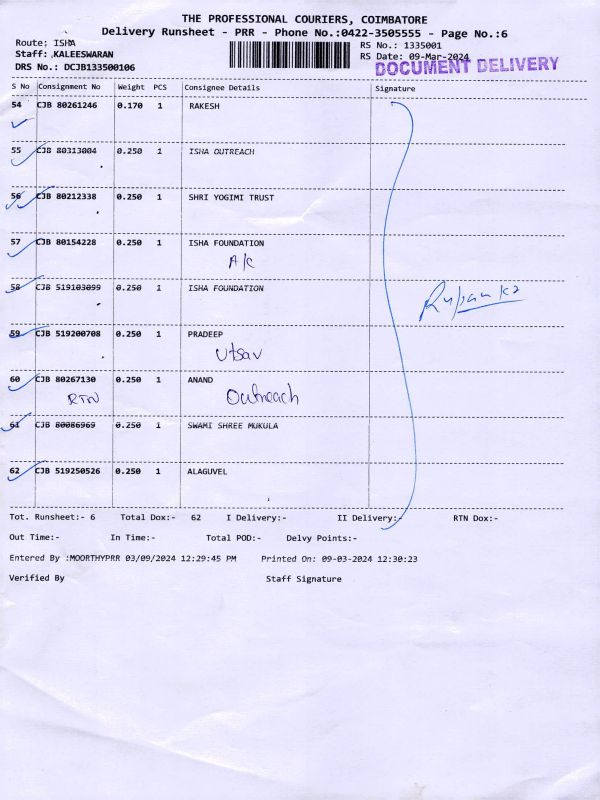 THE PROFESSIONAL COURIERS, COIMBATORE
Delivery Runsheet - PRR - Phone No.:0422-3505555 - Page No.:6
Route: ISHA
RS No.: 1335001
Staff: KALEESWARAN
RS Date: 09-Mar-2024
DRS No.: DCJB133500106
DOCUMENT DELIVERY
S No Consignment No Weight PCS Consignee Details Signature
54 CJB 80261246 0.170 1 RAKESH
55 CJB 80313004 0.250 1 ISHA OUTREACH
56 CJB 80212338 0.250 1 SHRI YOGIMI TRUST
57 CJB 80154228 0.250 1 ISHA FOUNDATION
A/c
58 CJB 519103099 0.250 1 ISHA FOUNDATION
59 CJB 519200708 0.250 1 PRADEEP
Utsav
60 CJB 80267130 0.250 1 ANAND
RTN Outreach
61 CJB 80086969 0.250 1 SWAMI SHREE MUKULA
62 CJB 519250526 0.250 1 ALAGUVEL
Tot. Runsheet:- 6 Total Dox:- 62 I Delivery:- II Delivery:- RTN Dox:-
Out Time:- In Time:- Total POD:- Delvy Points:-
Entered By :MOORTHYPRR 03/09/2024 12:29:45 PM Printed On: 09-03-2024 12:30:23
Verified By Staff Signature